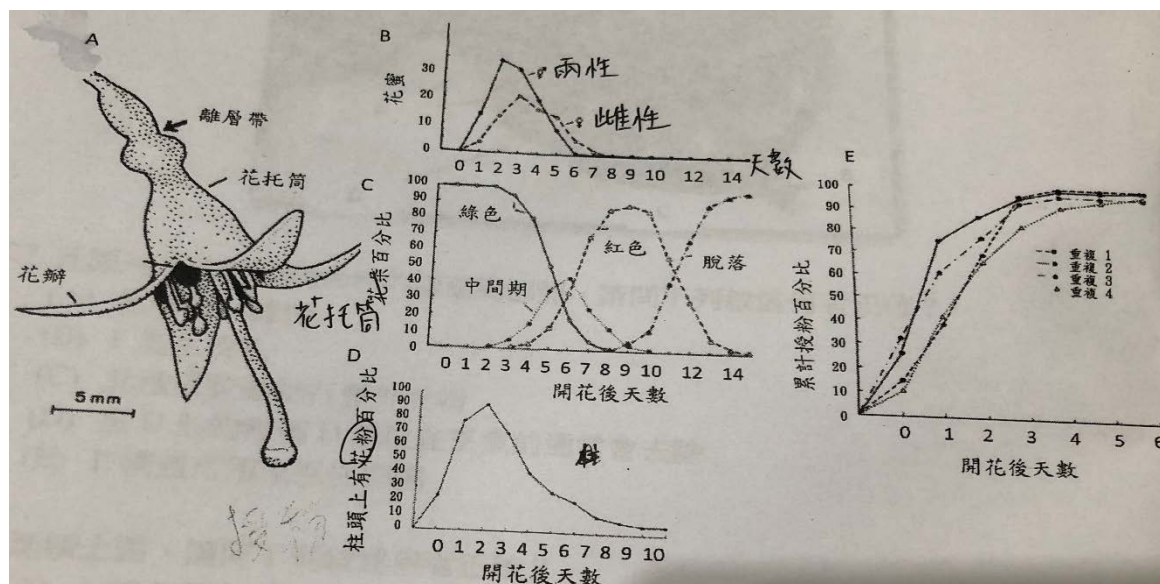 A
離層帶
花托筒
花瓣
花托筒
5mm
B
花蜜
30
20
10
0
♀ 兩性
♀ 雌性
0 1 2 3 4 5 6 7 8 10 12 14
天數
C
花朵百分比
100
90
80
70
60
50
40
30
20
10
0
綠色
中間期
紅色
脫落
0 1 2 3 4 5 6 7 8 9 10 12 14
開花後天數
D
柱頭上有花粉百分比
100
90
80
70
60
50
40
30
20
10
0
0 1 2 3 4 5 6 7 8 10
開花後天數
E
累計授粉百分比
100
90
80
70
60
50
40
30
20
10
0
重複 1
重複 2
重複 3
重複 4
0 1 2 3 4 5 6
開花後天數